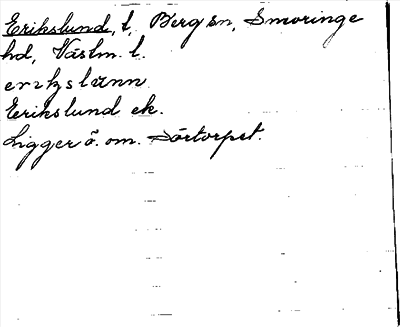 Erikslund, t, Berg sn, Snevringe
hd, Västm. l.
erɩkslūnn
Erikslund ek.
Ligger ö. om. Dörtorpet.